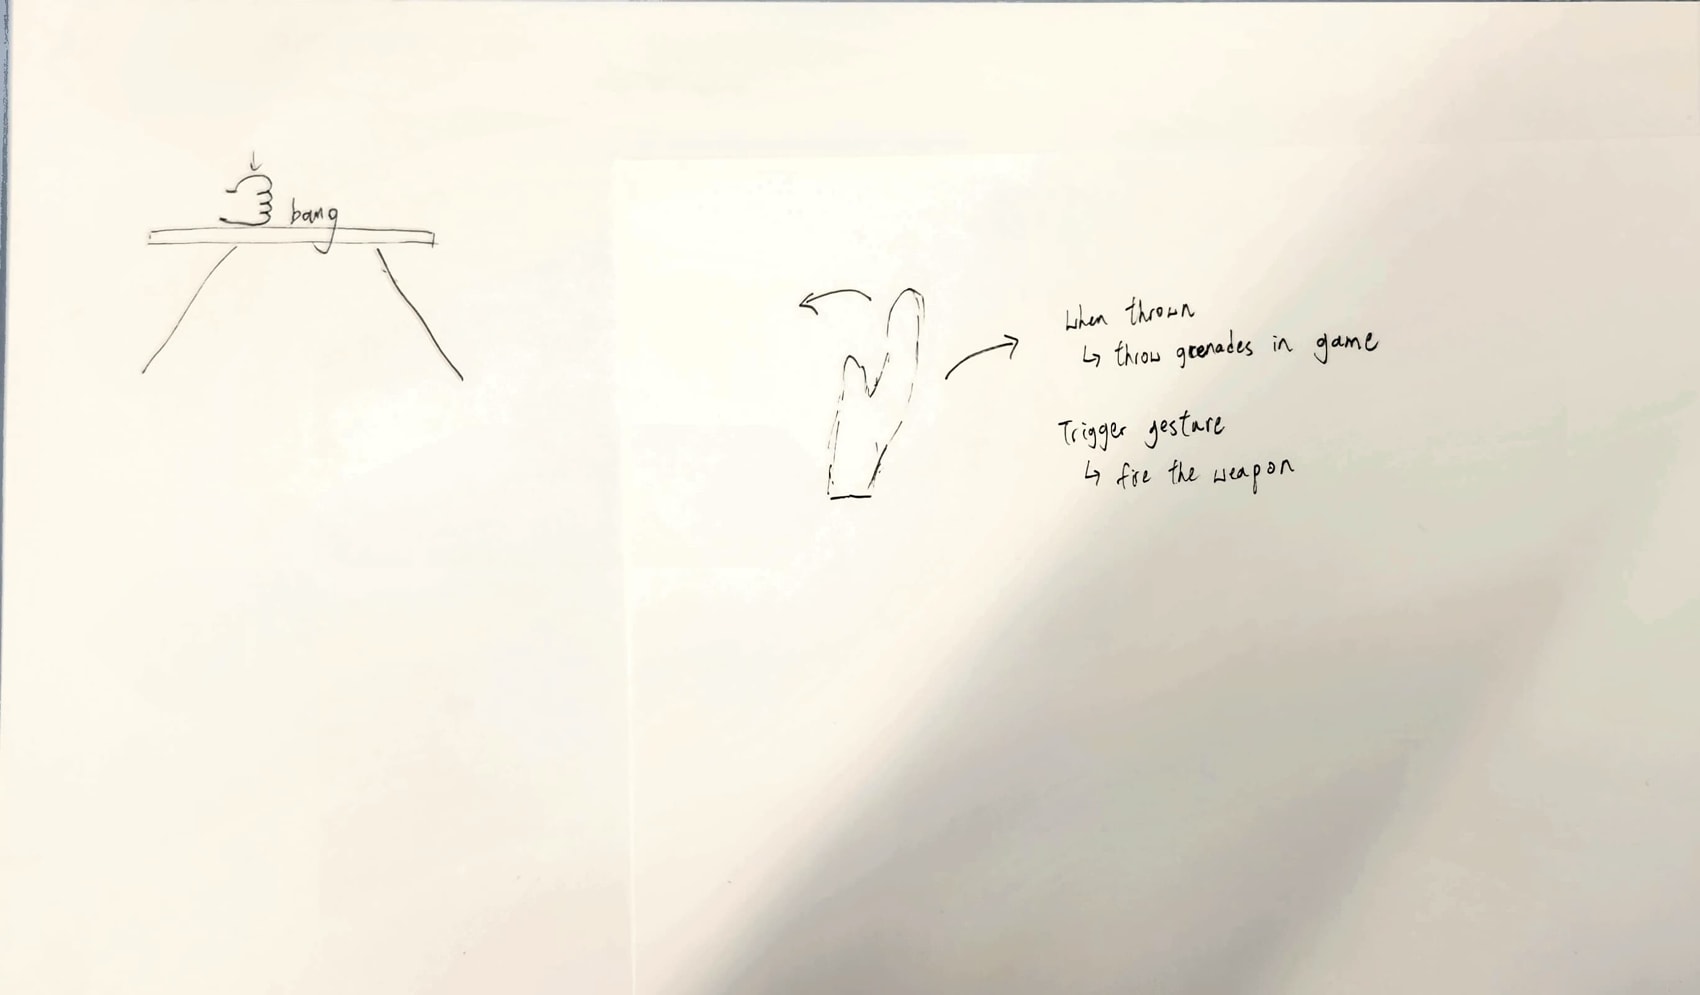 bang
When thrown
↳ throw grenades in game
Trigger gesture
↳ fire the weapon